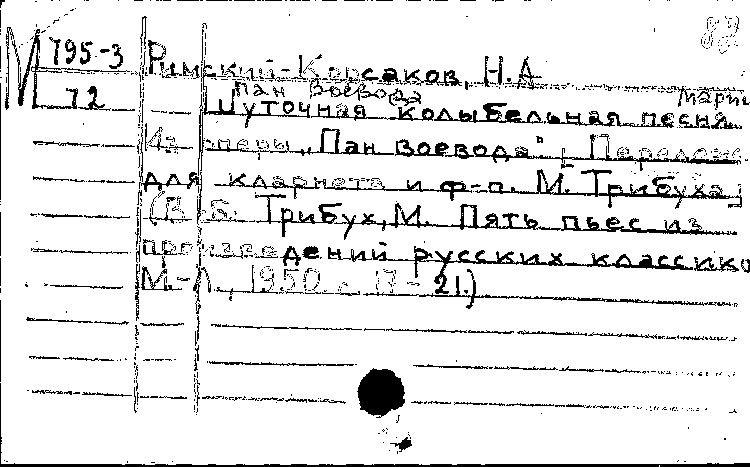 87
М 795-3
72
Римский-Корсаков, Н.А
Пан Воевода
Шуточная колыбельная песня Марии
Из оперы „Пан Воевода" [Перелож.
для кларнета и ф-п. М. Трибуха]
(В сб. Трибух, М. Пять пьес из
произведений русских классико
М.-Л., 1950. с. 17-21.)